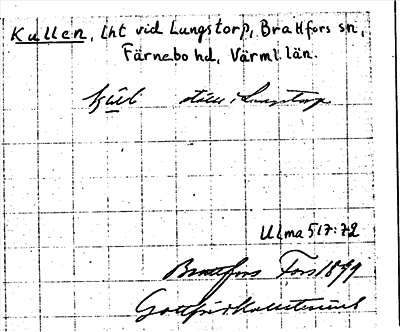 Kullen, Lht vid Lungstorp, Brattfors sn,
Färnebo hd, Värml. län.
ställe i Lungstorp
Ulma 517:72
Brattfors Fors 1899
Gottfrid Kallstenius